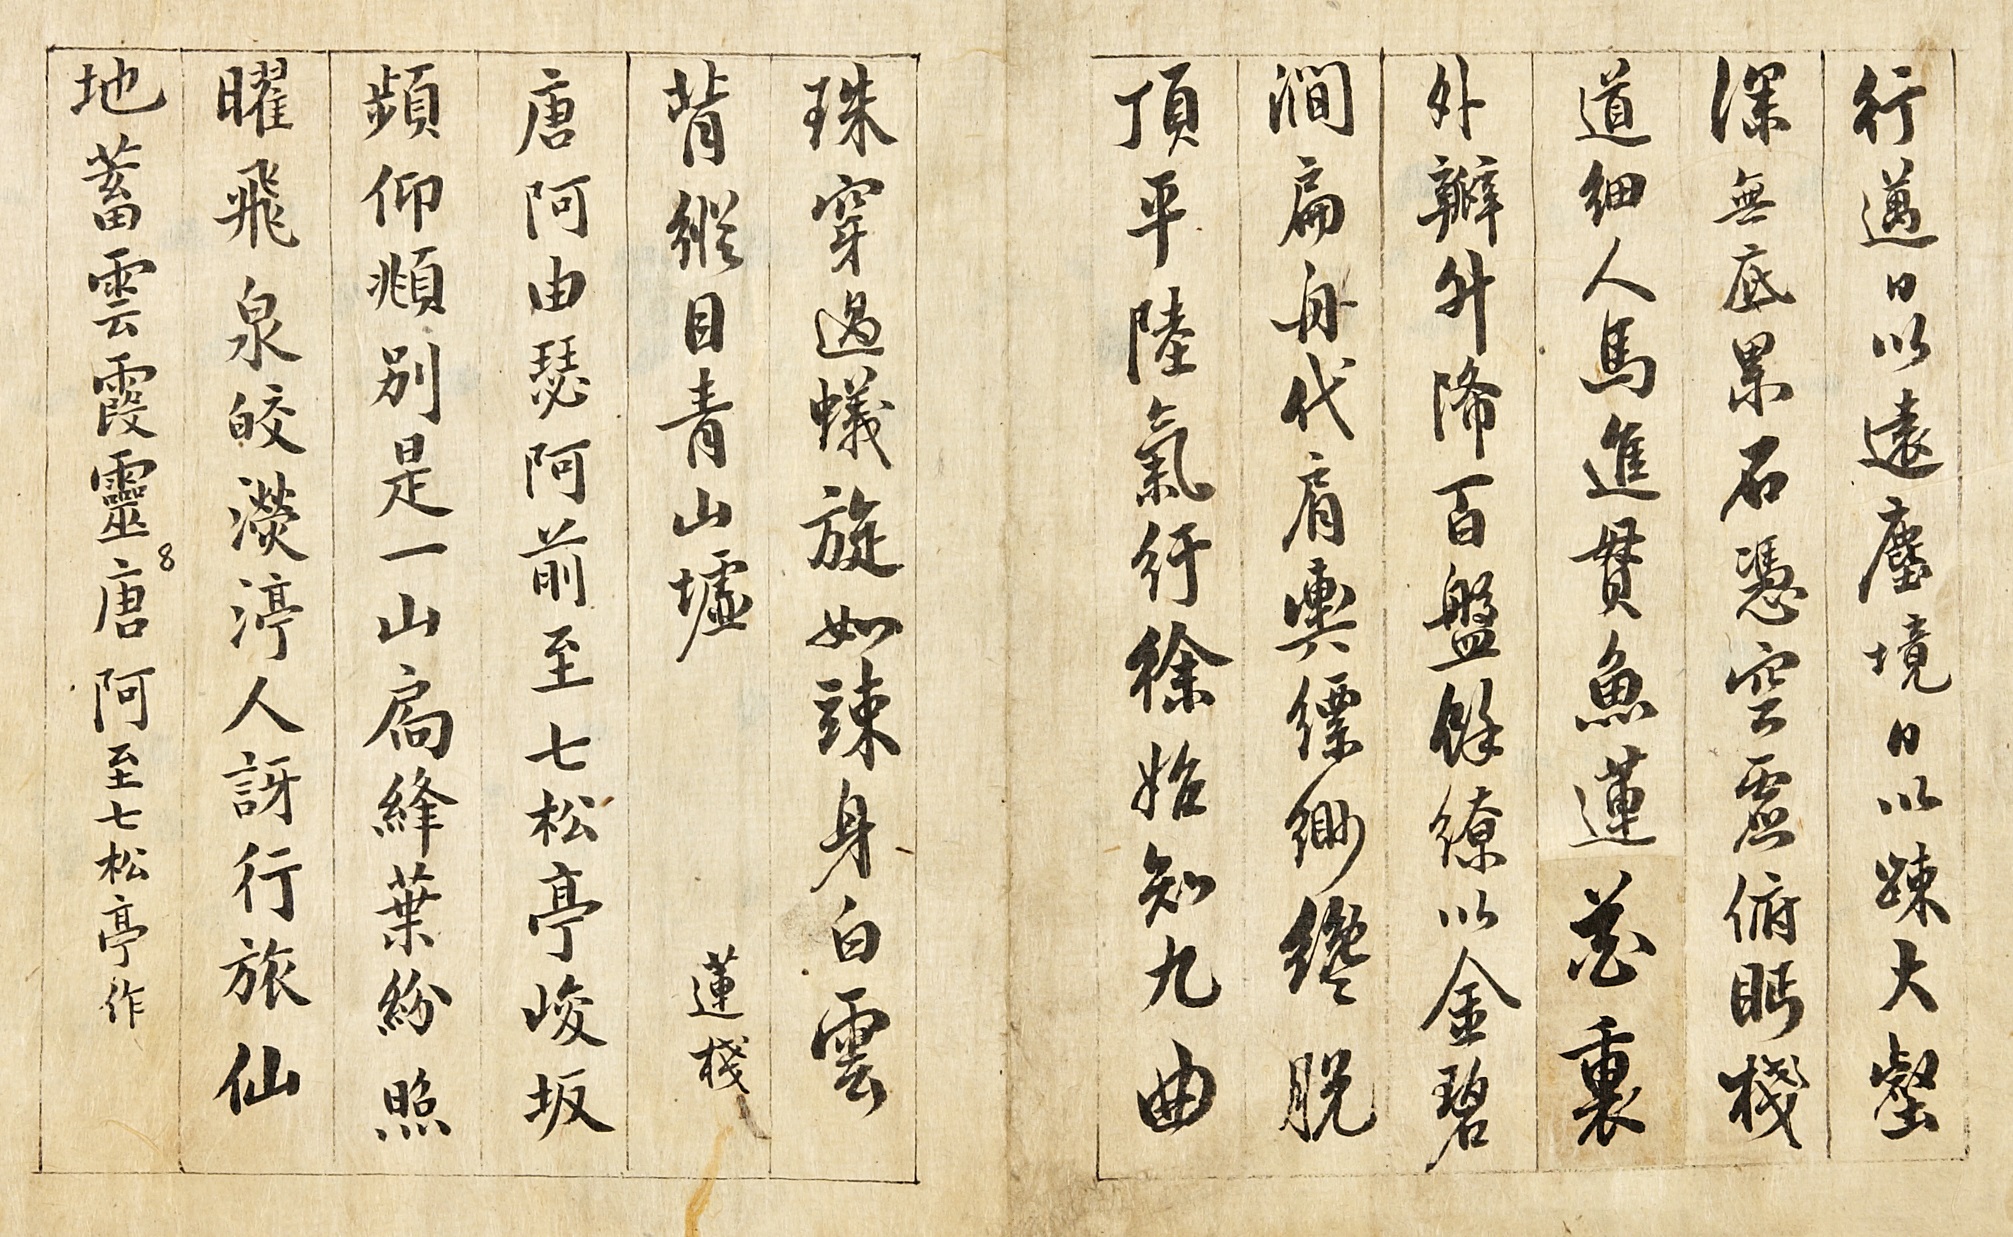 行邁日以遠塵境日以踈大壑
深無底累石憑空虛俯眄棧
道細人馬進貫魚蓮花裏
外瓣升降百盤餘繚以金碧
澗扁舟代肩輿縹緲纔脫
頂平陸氣行徐始知九曲
珠穿過蟻旋如竦身白雲
背縱目青山墟
蓮棧
唐阿由瑟阿前至七松亭峻坂
頻仰頫別是一山扃絳葉紛照
曜飛泉皎濙渟人訝行旅仙
地蓄雲霞靈
唐阿至七松亭作